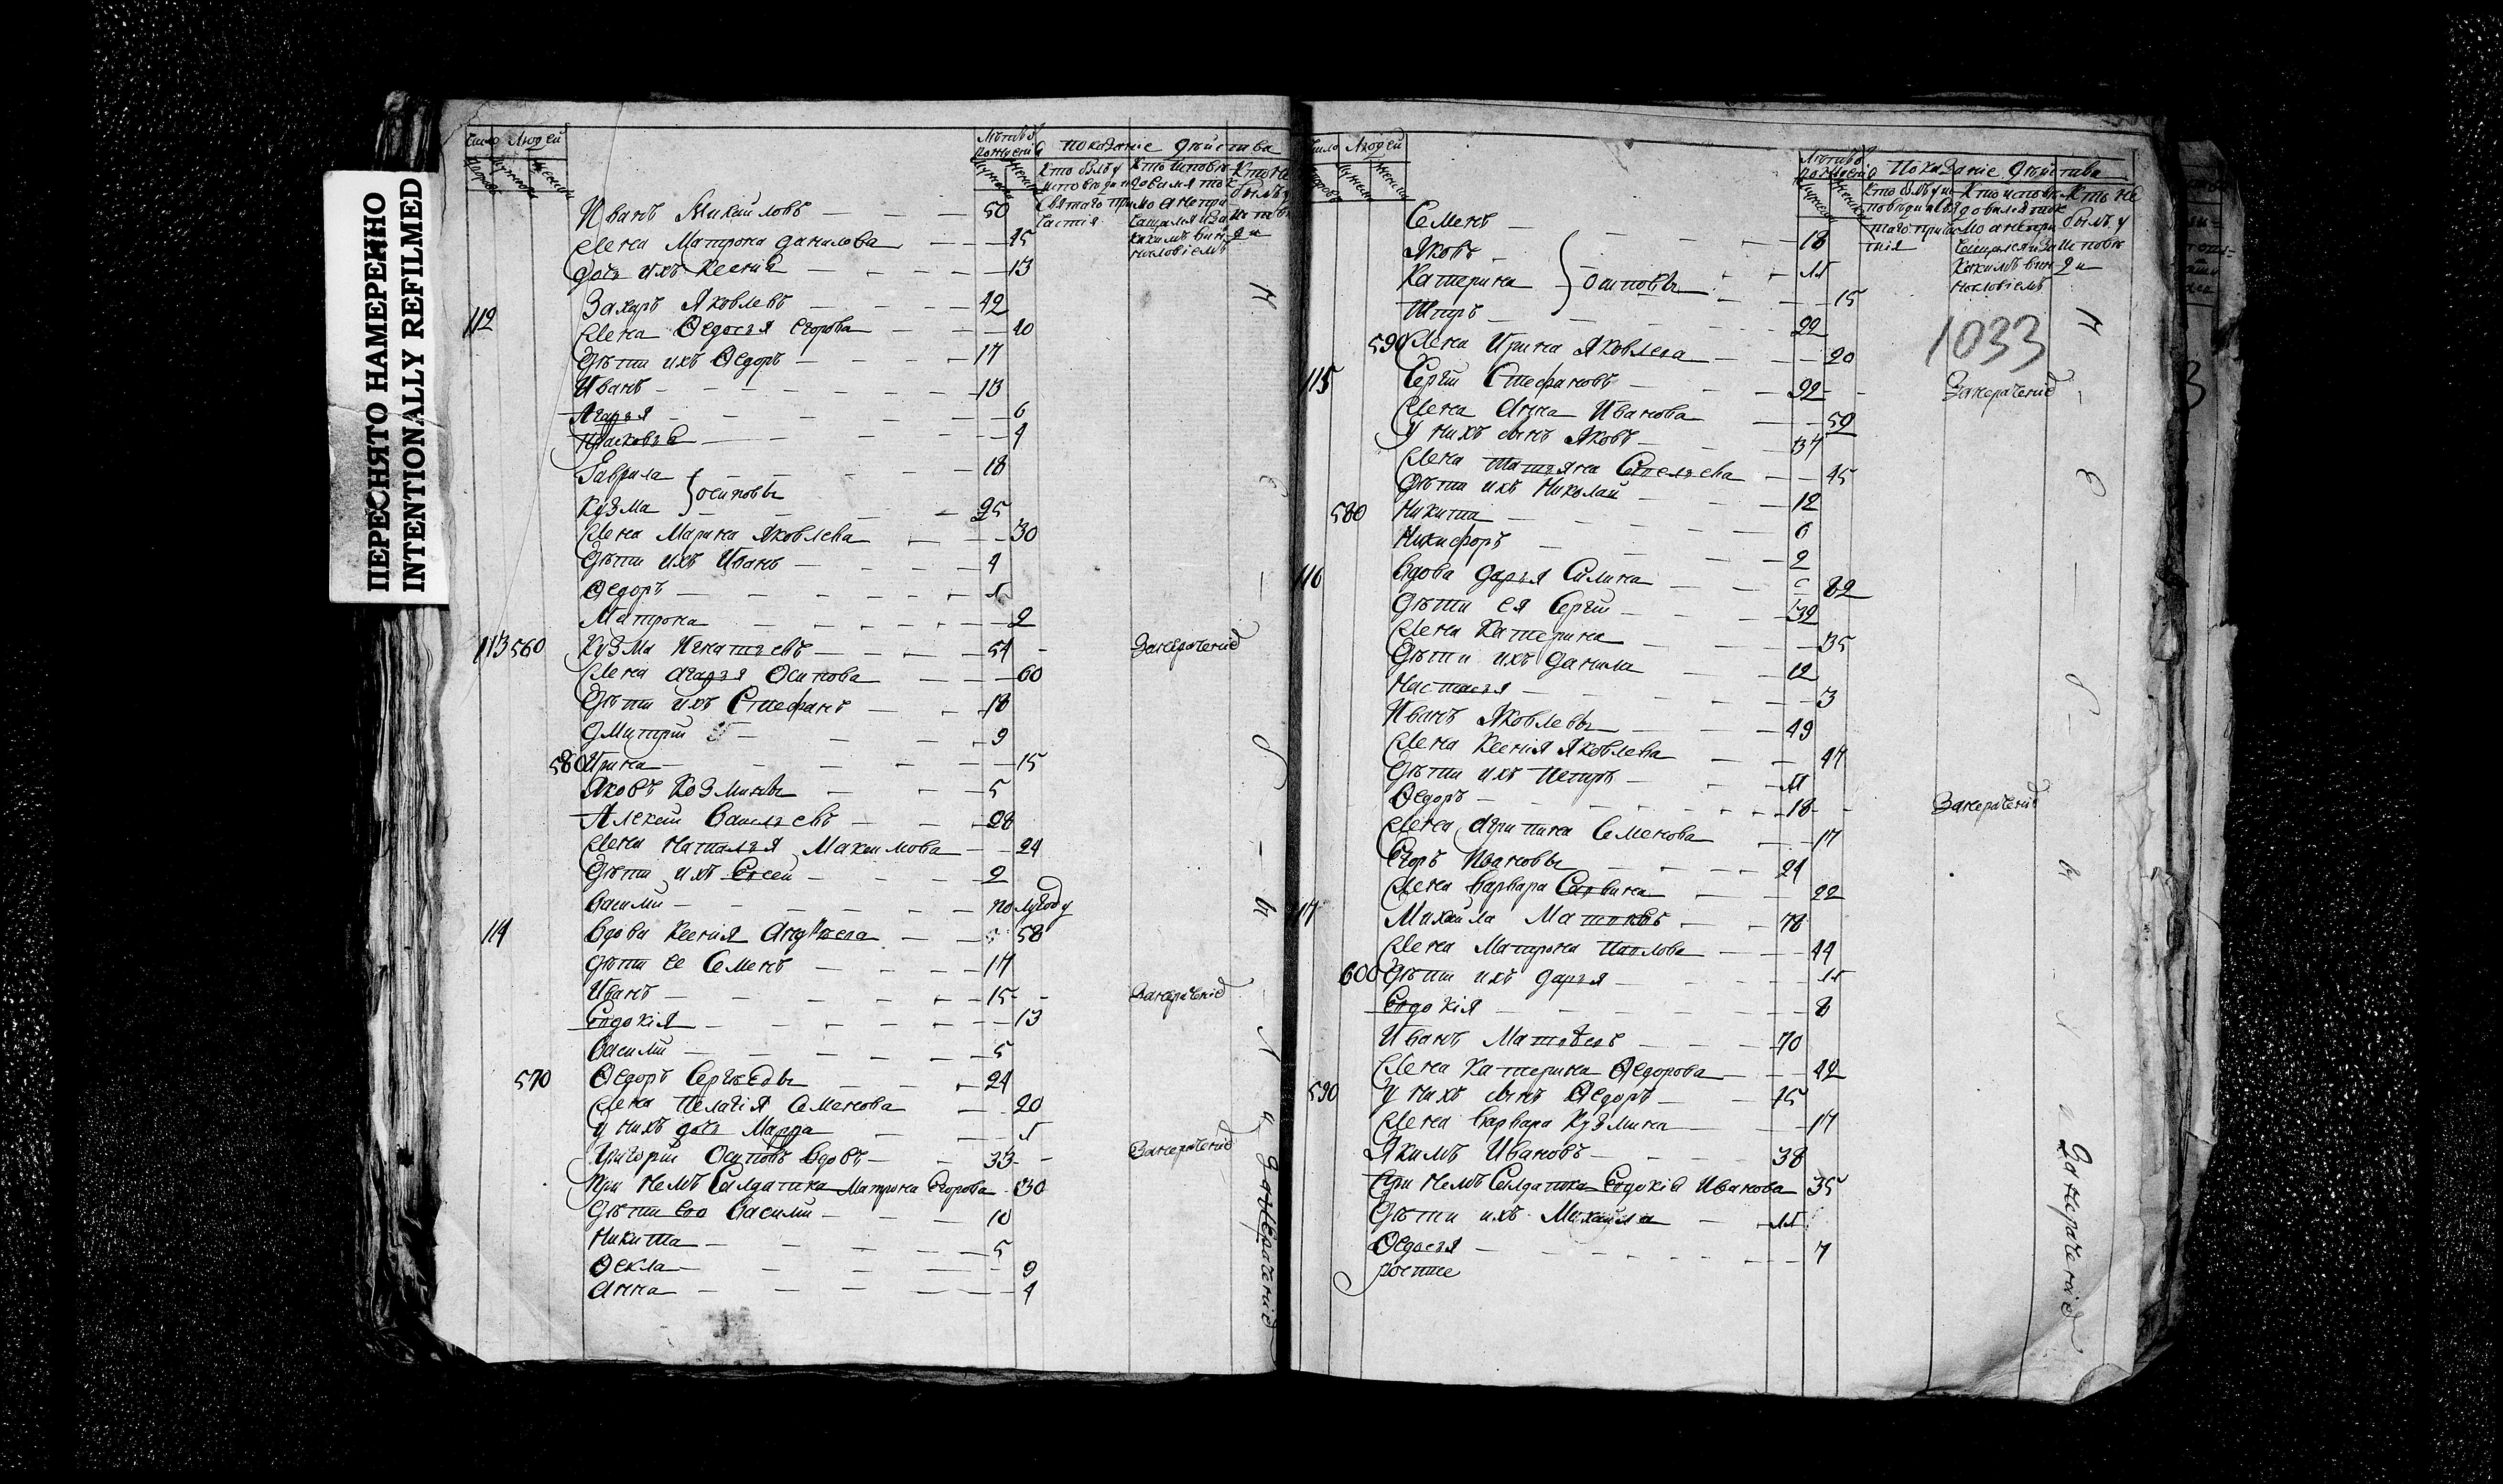 ПЕРЕСНЯТО НАМЕРЕННО
INTENTIONALLY REFILMED
Число Людей
Дворовъ Мужеска Женска
Лѣтъ ѿ рожденія
Мужеска Женска
Показаніе дѣйства
Кто былъ у исповѣди и святаго причастія
Кто исповѣдовался токмо а не причащался и за какимъ виннословіемъ
Кто не былъ у исповѣди
Иванъ Михайловъ 50
Жена Матрона Данилова 45
Дочь ихъ Ксенія 13
112 Захаръ Яковлевъ 42
Жена Ѳедосья Егорова 40
Дѣти ихъ Ѳедоръ 17
Иванъ 13
Агафья 6
Прасковья 4
Гаврила 18
} Осиповы
Кузма 25
Жена Марина Яковлева 30
Дѣти ихъ Иванъ 4
Ѳедоръ 1
Матрона 2
113 560 Кузма Игнатьевъ 54 Занерачение
Жена Агафья Осипова 60
Дѣти ихъ Стефанъ 18
Дмитрий 9
580 Ирина 15
Яковъ Козмины 5
Алексѣй Васильевъ 28
Жена Наталья Максимова 24
Дѣти ихъ Евсей 2
Василий полугоду
114 Вдова Ксения Андреева 58
Дѣти ее Семенъ 17
Иванъ 15 Занерачение
Евдокія 13
Василий 5
570 Ѳедоръ Сергѣевы 24
Жена Пелагія Семенова 20
У нихъ дочь Марфа 1
Григорий Осиповъ вдовъ 33 Занерачение
При немъ Салдатка Матрона Егорова 30
Дѣти Его Василий 10
Никита 5
Ѳекла 9
Анна 4
Занерачение
Число Людей
Дворовъ Мужеска Женска
Лѣтъ ѿ рожденія
Мужеска Женска
Показаніе дѣйства
Кто былъ у исповѣди и святаго причастія
Кто исповѣдовался токмо а не причащался и за какимъ виннословіемъ
Кто не былъ у исповѣди
Семенъ 18
Яковъ 11
Катерина } Осиповы 15
Петръ 22
590 Жена Ирина Яковлева 20
1033
115 Сергѣй Стефановъ 92 Занерачение
Жена Анна Иванова 59
У нихъ сынъ Яковъ 37
Жена Татьяна Савельева 45
Дѣти ихъ Николай 12
580 Никита 6
Никифоръ 2
116 Вдова Дарья Силина 82
Дѣти ея Сергѣй 39
Жена Катерина 35
Дѣти ихъ Данила 12
Настасья 3
Иванъ Яковлевы 49
Жена Ксенія Яковлева 47
Дѣти ихъ Петръ 11
Ѳедоръ 18 Занерачение
Жена Агрипина Семенова 17
Егоръ Ивановы 24
Жена Варвара Савина 22
117 Михайла 78
Жена Матрона Павлова 44
600 Дѣти ихъ Дарья 11
Евдокія 8
Иванъ Матвѣевъ 70
Жена Катерина Ѳедорова 42
590 У нихъ сынъ Ѳедоръ 15
Жена Варвара Кузмина 17
Якимъ Ивановъ 38
При немъ Салдатка Евдокія Иванова 35
Дѣти ихъ Михайла 11
Ѳедосья 7
Занерачение